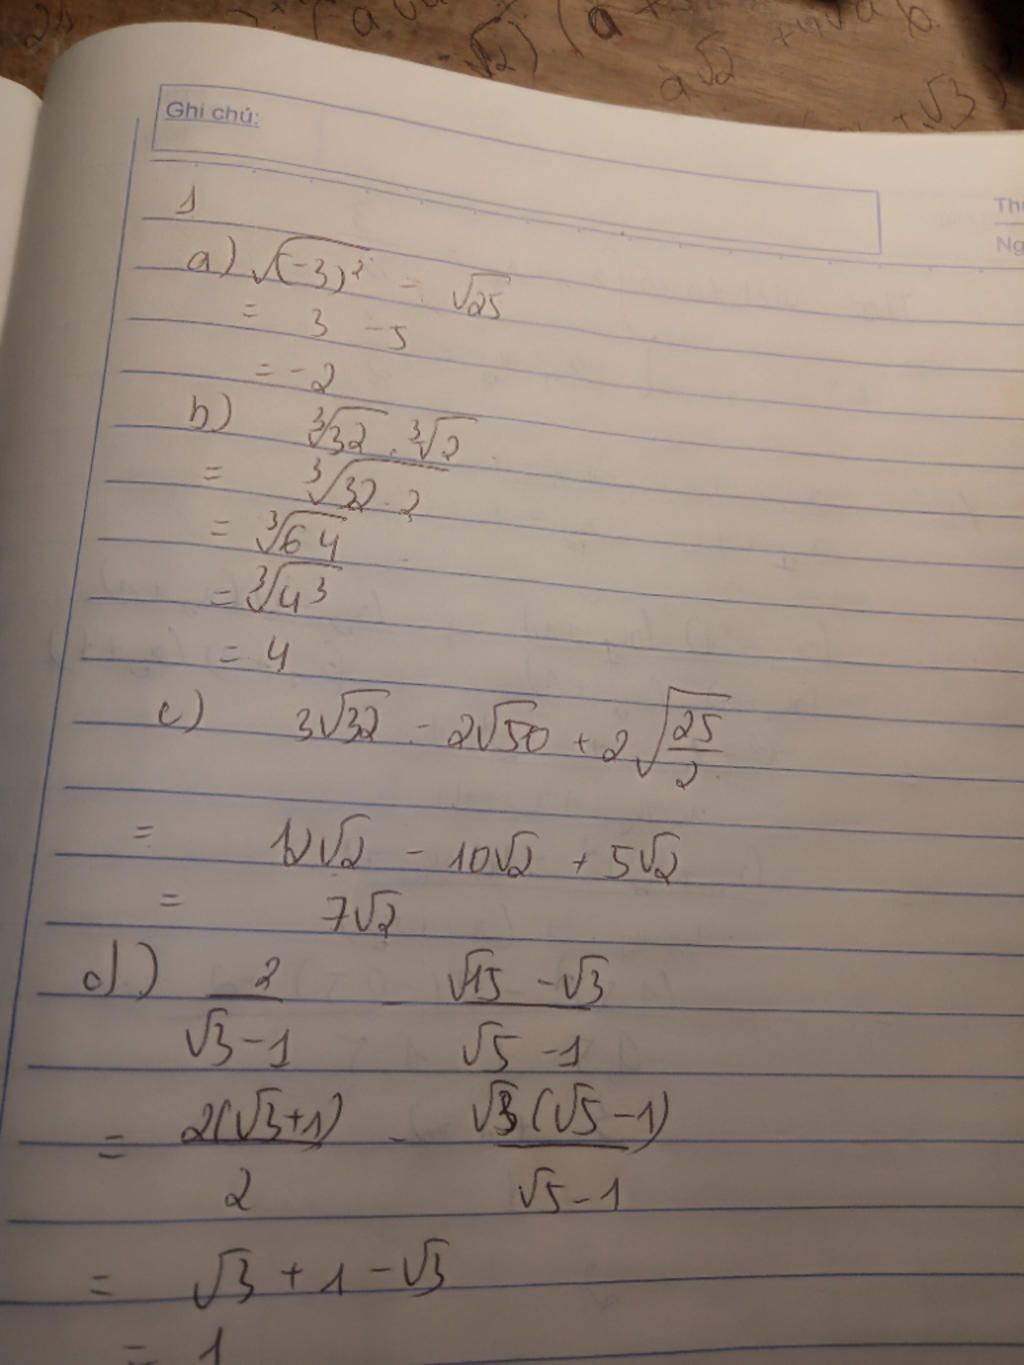 Ghi chú:
1
a) √(-3)² - √25
= 3 - 5
= -2
b) ∛32 . ∛2
= ∛32 . 2
= ∛64
= ∛4³
= 4
c) 3√32 - 2√50 + 2√25/2
= 12√2 - 10√2 + 5√2
= 7√2
d) 2/(√3 - 1) - (√15 - √3)/(√5 - 1)
= 2(√3+1)/2 - √3(√5-1)/(√5-1)
= √3 + 1 - √3
= 1